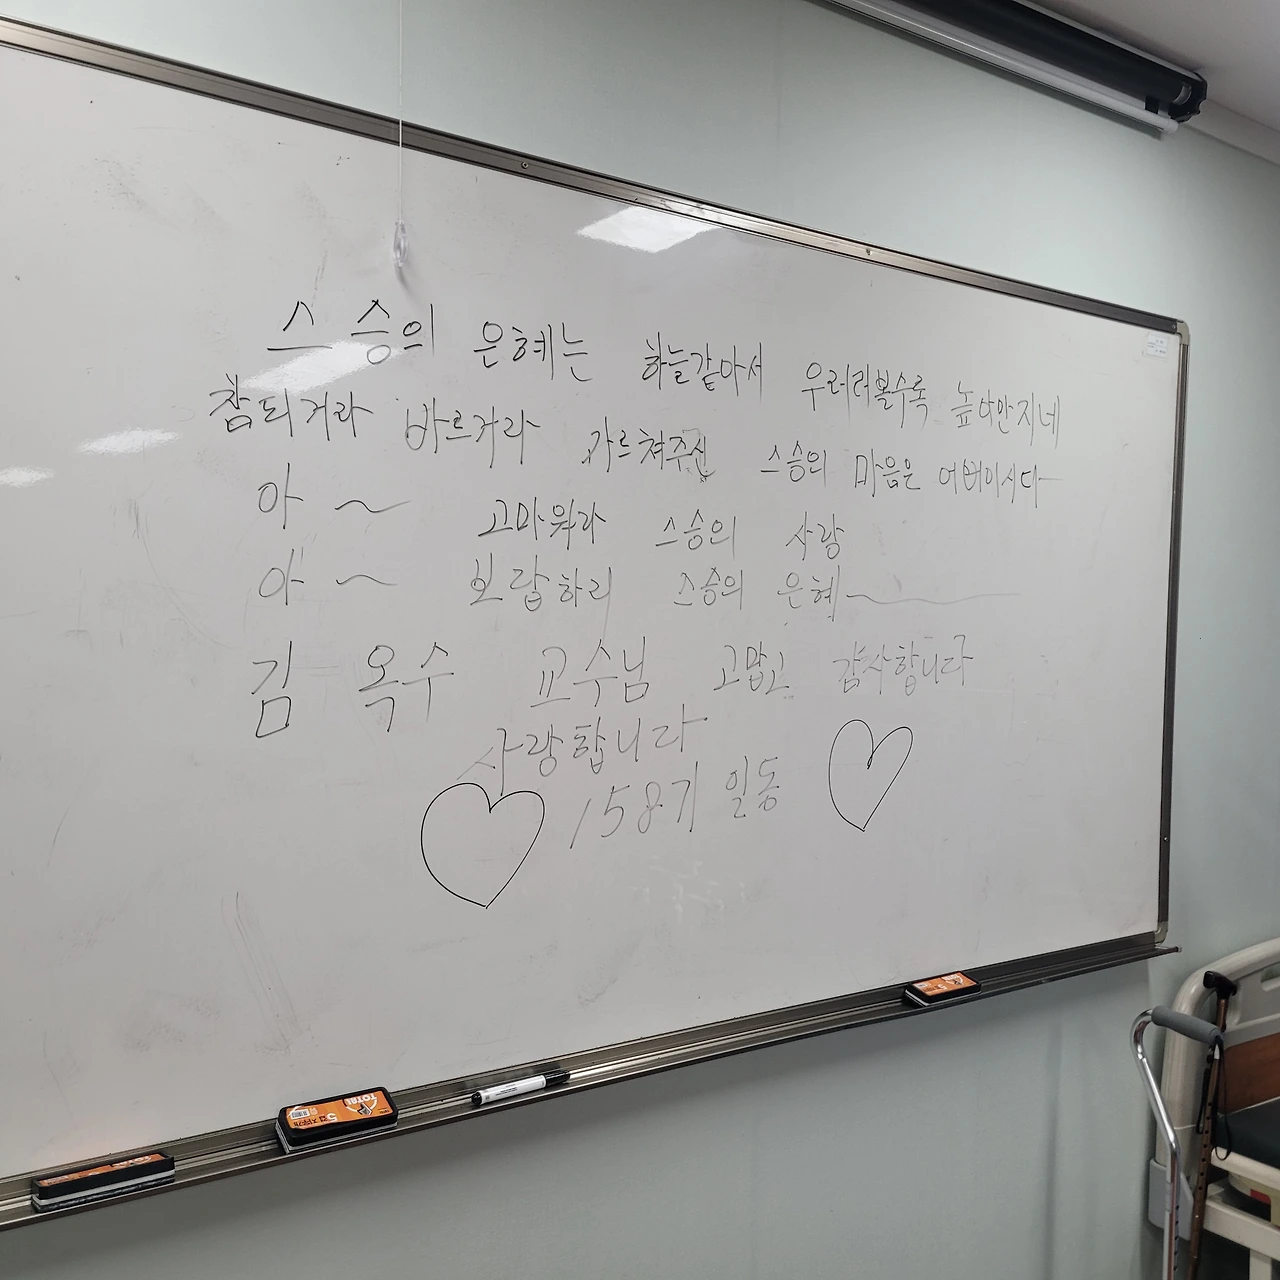 스승의 은혜는 하늘같아서 우러러볼수록 높아만지네
참되거라 바르거라 가르쳐주신 스승의 마음은 어버이시다
아~ 고마워라 스승의 사랑
아~ 보답하리 스승의 은혜~
김옥수 교수님 고맙고 감사합니다
사랑합니다
158기 일동
TOTAL